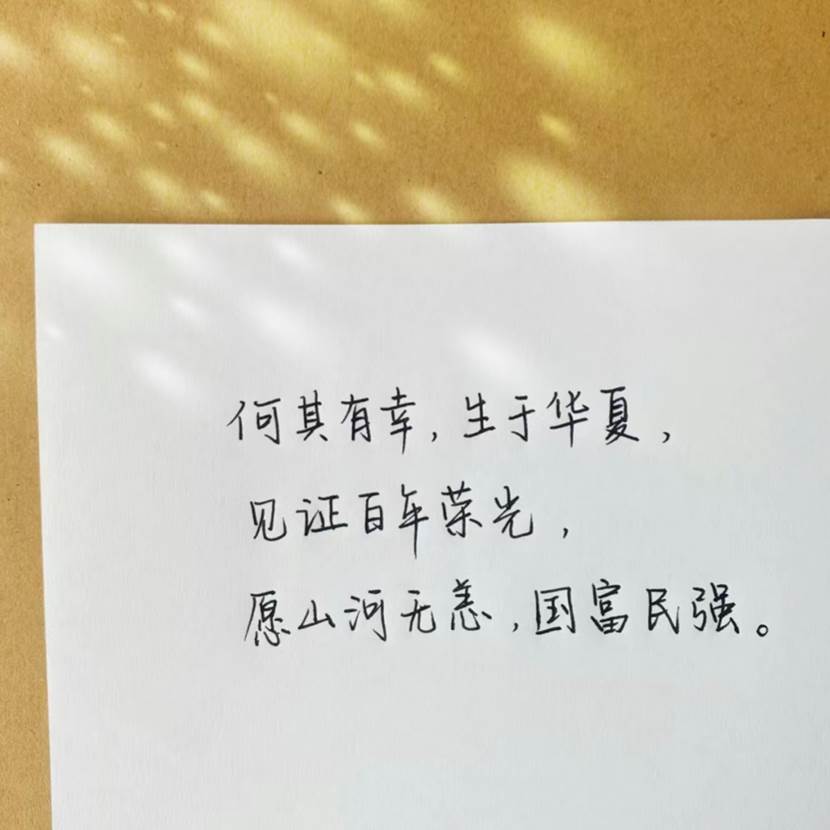 何其有幸，生于华夏，
见证百年荣光，
愿山河无恙，国富民强。